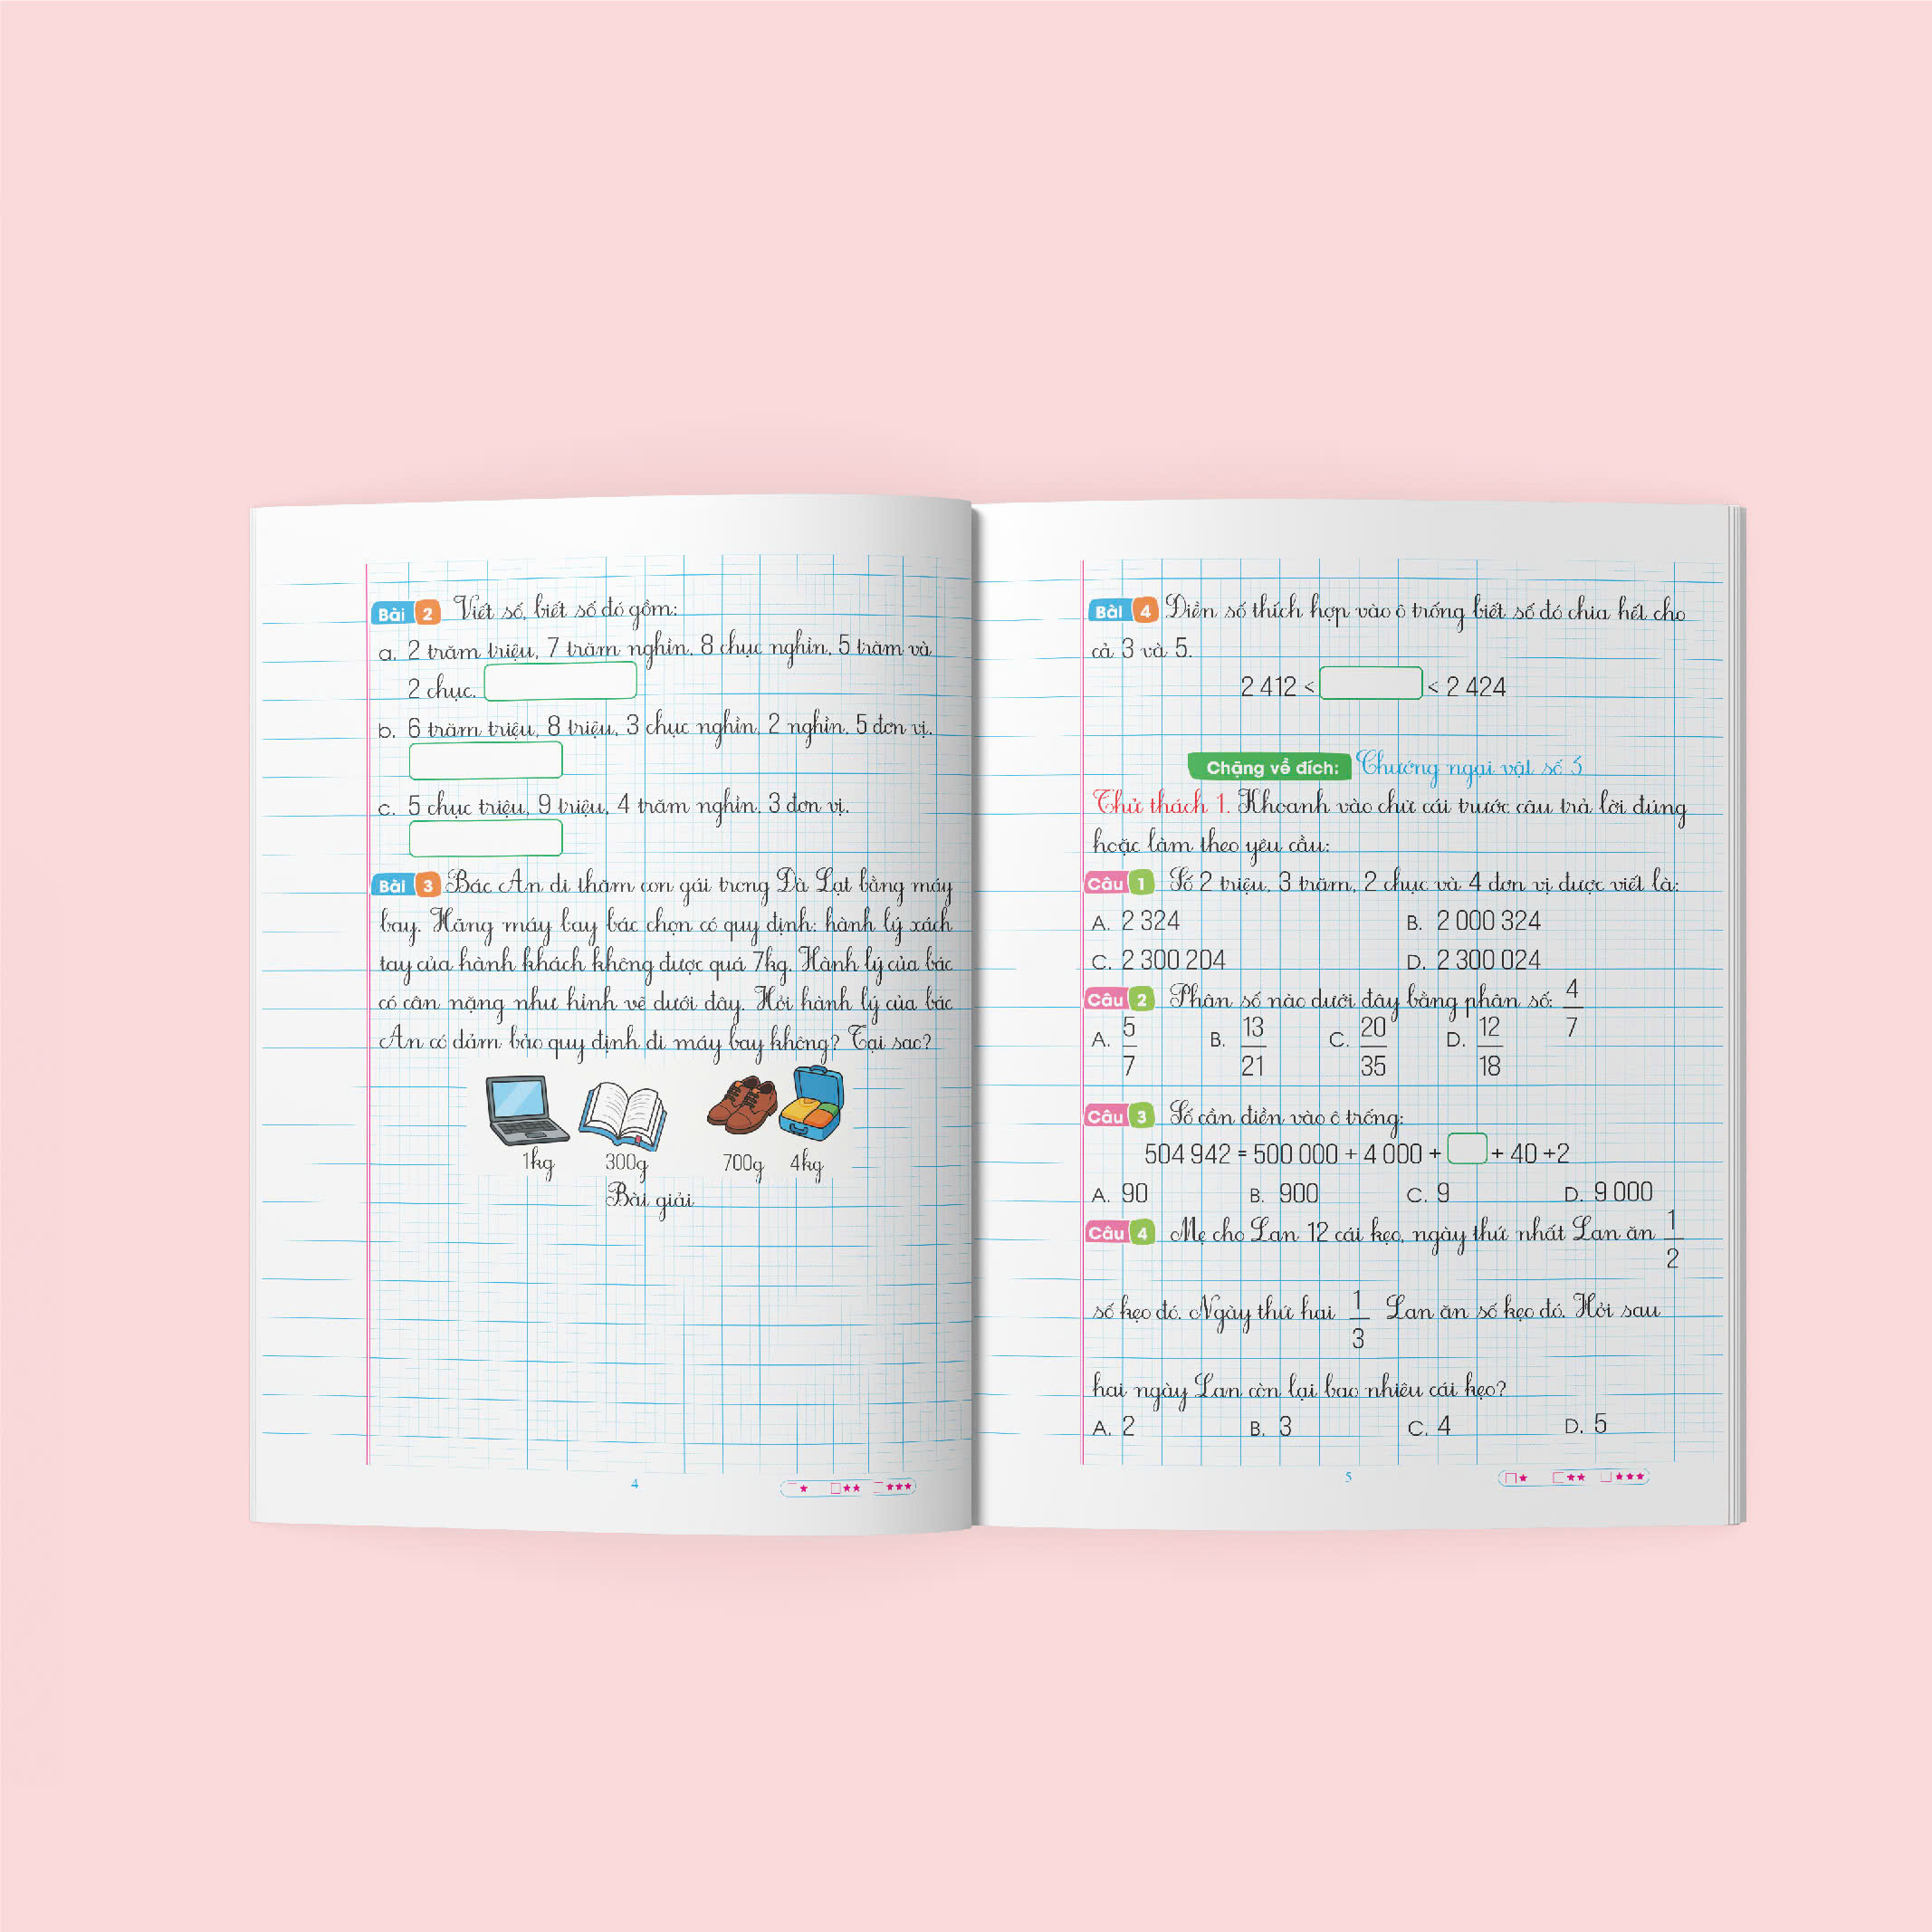 Bài 2 Viết số, biết số đó gồm:
a. 2 trăm triệu, 7 trăm nghìn, 8 chục nghìn, 5 trăm và
2 chục.
b. 6 trăm triệu, 8 triệu, 3 chục nghìn, 2 nghìn, 5 đơn vị.
c. 5 chục triệu, 9 triệu, 4 trăm nghìn, 3 đơn vị.
Bài 3 Bác An đi thăm con gái trong Đà Lạt bằng máy
bay. Hãng máy bay bác chọn có quy định: hành lý xách
tay của hành khách không được quá 7kg. Hành lý của bác
có cân nặng như hình vẽ dưới đây. Hỏi hành lý của bác
An có đảm bảo quy định đi máy bay không? Tại sao?
1kg 300g 700g 4kg
Bài giải
4
Bài 4 Điền số thích hợp vào ô trống biết số đó chia hết cho
cả 3 và 5.
2 412 < < 2 424
Chặng về đích: Chướng ngại vật số 3
Thử thách 1. Khoanh vào chữ cái trước câu trả lời đúng
hoặc làm theo yêu cầu:
Câu 1 Số 2 triệu, 3 trăm, 2 chục và 4 đơn vị được viết là:
A. 2 324 B. 2 000 324
C. 2 300 204 D. 2 300 024
Câu 2 Phân số nào dưới đây bằng phân số: 4/7
A. 5/7 B. 13/21 C. 20/35 D. 12/18
Câu 3 Số cần điền vào ô trống:
504 942 = 500 000 + 4 000 + + 40 +2
A. 90 B. 900 C. 9 D. 9 000
Câu 4 Mẹ cho Lan 12 cái kẹo, ngày thứ nhất Lan ăn 1/2
số kẹo đó. Ngày thứ hai 1/3 Lan ăn số kẹo đó. Hỏi sau
hai ngày Lan còn lại bao nhiêu cái kẹo?
A. 2 B. 3 C. 4 D. 5
5